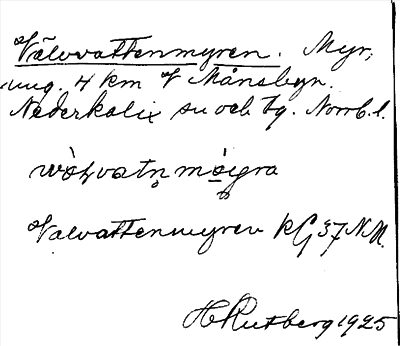 Välvvattenmyren. Myr,
ung. 4 km V Månsbyn.
Nederkalix sn och tg. Norrb. l.
Valvattenmyren KG 37 N.M.
H Rutberg 1925